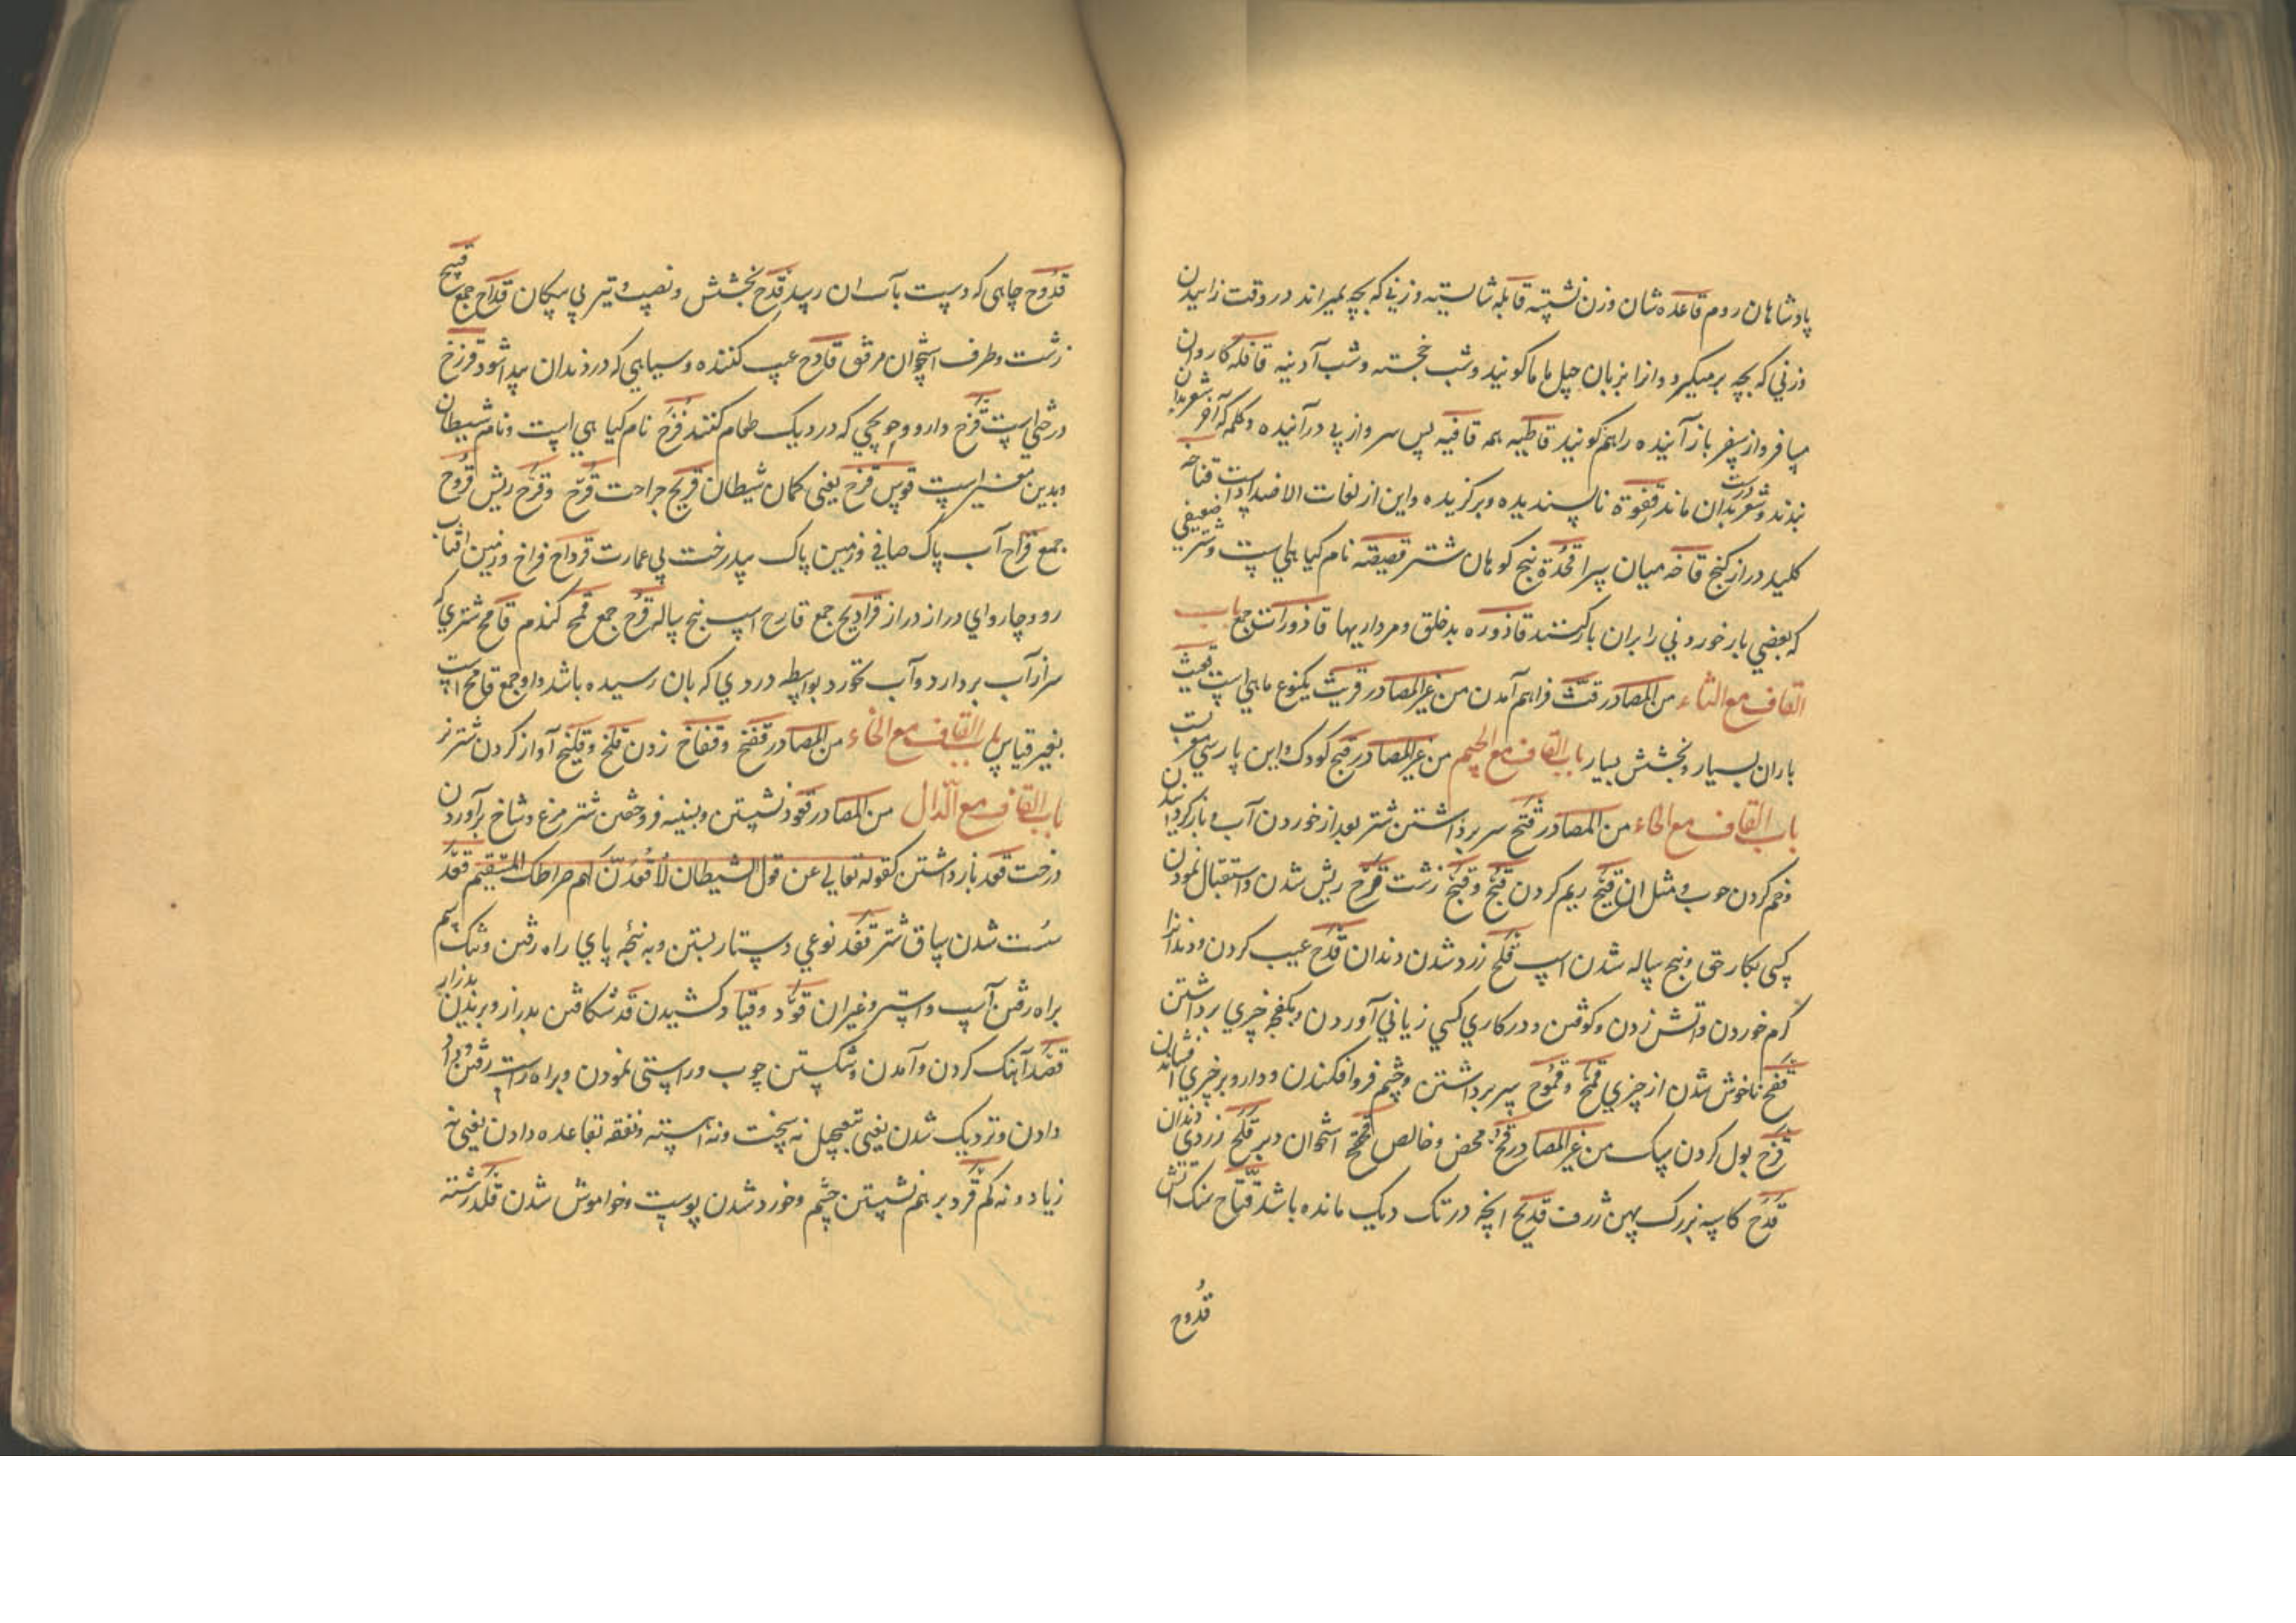 پادشاهان روم قاعده شان وزن نشسته قابله شایسته و زنی که بچه بمیراند در وقت زاییدن
وزنی که بچه برمیگیرد و انرا بزبان جیل ماما کویند و شب خجسته و شب آدینه قافله کاروان
مسافر و از سفر باز آینده را هم کویند قاطبه همه قافیه پس سر و از پی درآینده و کلمه که آخر شعر بدان
بندند و شعر بدان ماند قفوة ناپسندیده و برکزیده و این از لغات الاضداد است قناحه
کلید دراز کنج قاخه میان سرا قحدة بیخ کوهان شتر قصیصه نام کیاهی است و شتر ضعیفی
که بعضی بار خوردنی را بران بار کنند قاذوره بدخلق و مرداریها قاذورات جمع باب
القاف مع الثاء من المصادر قث فراهم آمدن من غیر المصادر قریث یکنوع ماهی است قعیث
باران بسیار و بخشش بسیار باب القاف مع الجیم من غیر المصادر قبج کودک و این پارسی معرب
باب القاف مع الحاء من المصادر قمح سر برداشتن شتر بعد از خوردن آب و باز کردانیدن
و خم کردن چوب و مثل ان قیح ریم کردن قبح و قبح زشت قرح ریش شدن و استقبال نمودن
کسی بکار حق و پنج ساله شدن اسپ قلح زرد شدن دندان قدح عیب کردن و دندانرا
کرم خوردن و اتش زدن و کوفتن و در کاری کسی زیانی آوردن و بکفچه چیزی برداشتن
قفح ناخوش شدن از چیزی قمح و قموح سر برداشتن و چشم فرو افکندن و دارو بر چیزی افشاندن
قزح بول کردن سک من غیر المصادر قح محض و خالص قحقح استخوان دبر قلح زردی دندان
قدح کاسه بزرک پهن ژرف قدیح انچه در تک دیک مانده باشد قداح سنک اتش
قدوح
قدوح چاهی که دست بآب ان رسد قدح بخشش و نصیب و تیر بی پیکان قداح جمع قبیح
زشت و طرف استخوان مرفق قادح عیب کننده و سیاهی که در دندان پیدا شود قزح
درختی است قزح دارو و حویجی که در دیک طعام کنند قزح نام کیاهی است و نام شیطان
و بدین معنی است قوس قزح یعنی کمان شیطان قریح جراحت قرح و قرح ریش قروح
جمع قراح آب پاک صافی و زمین پاک بیدرخت بی عمارت قرواح فراخ و زمین افتاب
رو و چاروای دراز دراز قرادیح جمع قارح اسپ پنج ساله قرح جمع قمح کندم قامح شتری که
سر از آب بردارد و آب نخورد بواسطه دردی که بان رسیده باشد و او جمع قامح است
بغیر قیاس باب القاف مع الخاء من المصادر قفخ و قفاخ زدن قلخ و قلیخ آواز کردن شتر نر
باب القاف مع الدال من المصادر قعود نشستن و بنیه فروختن شتر مرغ و شاخ برآوردن
درخت قعد باز داشتن کقوله تعالی عن قول الشیطان لاقعدن لهم صراطک المستقیم قعد
سست شدن ساق شتر قفد نوعی دستار بستن و به پنجه پای راه رفتن و تنک سم
براه رفتن اسپ و استر و غیران قود و قیاد کشیدن قد شکافتن بدراز و بریدن بدراز
قصد آهنک کردن و آمدن و شکستن چوب و راستی نمودن و براه راست رفتن و داد
دادن و نزدیک شدن یعنی بتعجیل نه سخت و نه آهسته و نفقه بقاعده دادن یعنی نه
زیاد و نه کم قرد بر هم نشستن چشم و خورد شدن پوست و خواموش شدن قلد رشته